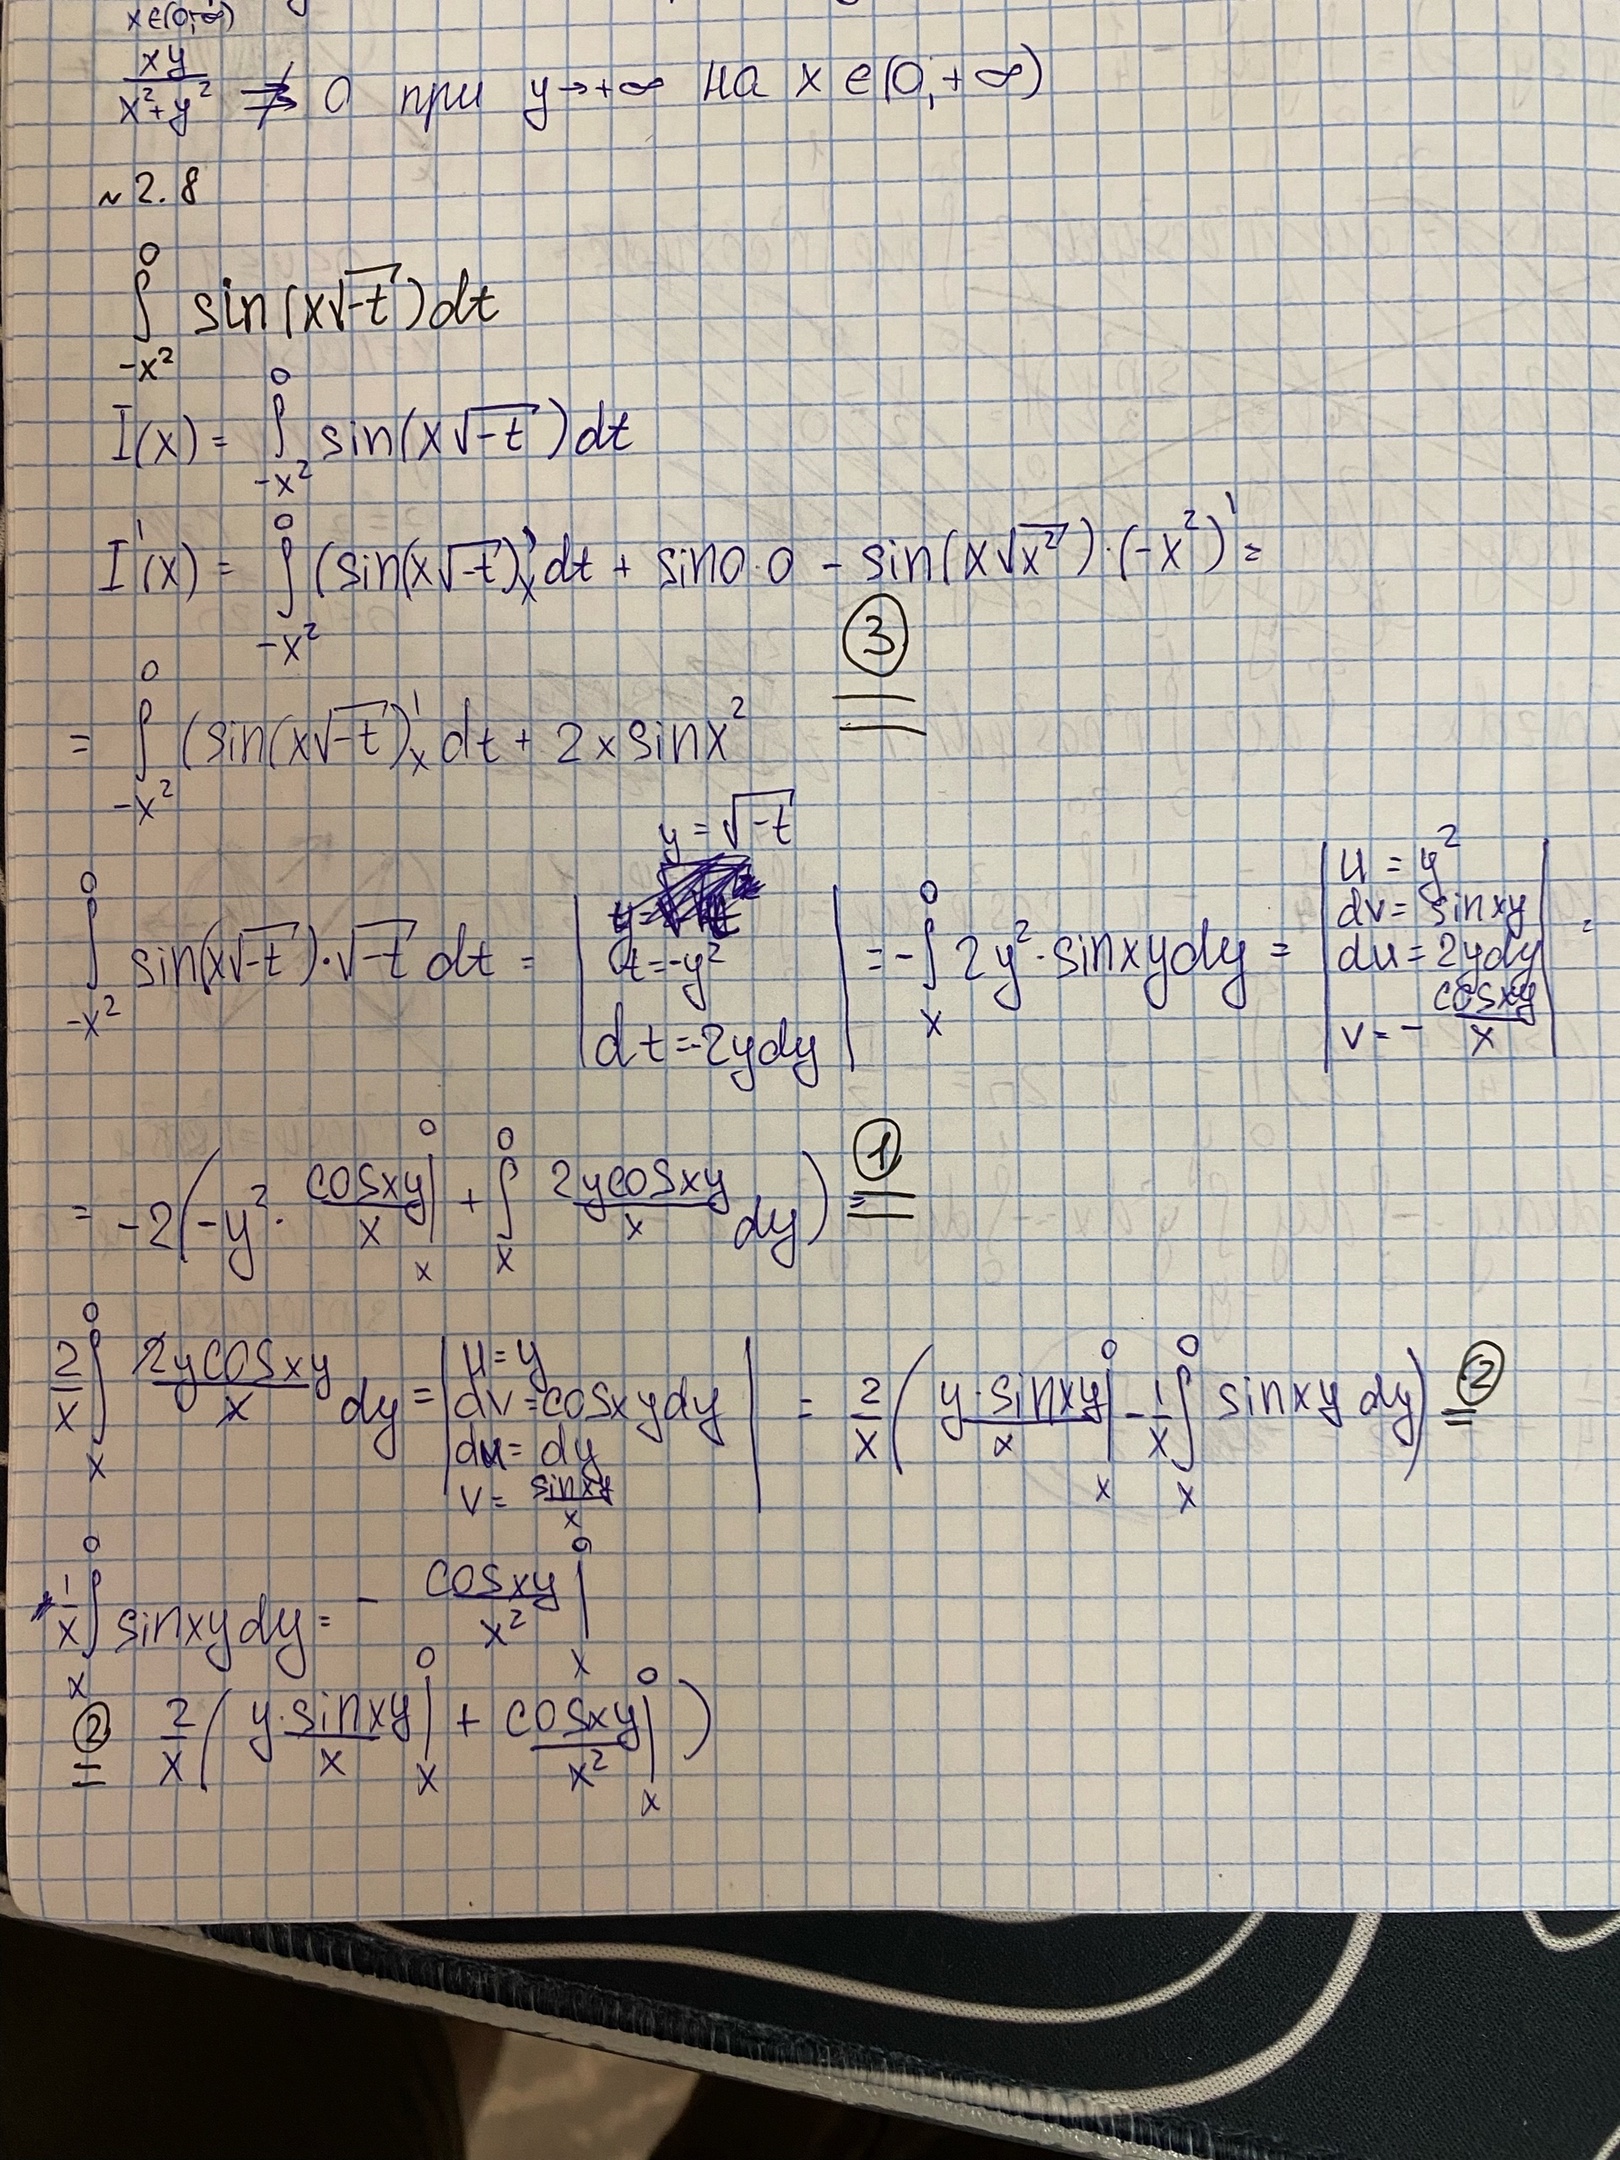 x∈(0,∞)
xy/(x²+y²) ⇉̸ 0 при y→+∞ на x∈(0,+∞)
~2.8
∫_{-x²}^{0} sin(x√-t)dt
I(x) = ∫_{-x²}^{0} sin(x√-t)dt
I'(x) = ∫_{-x²}^{0} (sin(x√-t)'ₓdt + sin0·0 - sin(x√x²)·(-x²)' =
③
= ∫_{-x²}^{0} (sin(x√-t)'ₓ dt + 2x sinx² =
∫_{-x²}^{0} sin(x√-t)·√-t dt = | y = √-t t=-y² dt=-2ydy | = -∫_{x}^{0} 2y²·sinxydy = | u = y² dv = sinxy du = 2ydy v = - cosxy/x | =
= -2(-y²· cosxy/x |_{x}^{0} + ∫_{x}^{0} 2ycosxy/x dy) = ①
2/x ∫_{x}^{0} 2ycosxy/x dy = | u=y dv=cosxydy du=dy v= sinxy/x | = 2/x (y·sinxy/x |_{x}^{0} - 1/x ∫_{x}^{0} sinxy dy) = ②
1/x ∫_{x}^{0} sinxydy = - cosxy/x² |_{x}^{0}
② = 2/x (y·sinxy/x |_{x}^{0} + cosxy/x² |_{x}^{0})